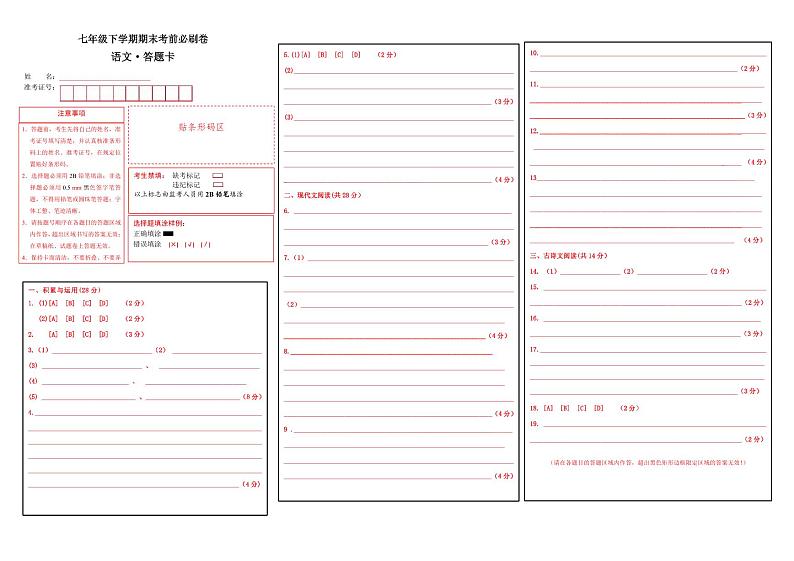 七年级下学期期末考前必刷卷
语文·答题卡
姓 名：
准考证号：
注意事项
1．答题前，考生先将自己的姓名，准
考证号填写清楚，并认真核准条形
码上的姓名、准考证号，在规定位
置贴好条形码。
2．选择题必须用2B铅笔填涂；非选
择题必须用0.5 mm黑色签字笔答
题，不得用铅笔或圆珠笔答题；字
体工整、笔迹清晰。
3．请按题号顺序在各题目的答题区域
内作答，超出区域书写的答案无效；
在草稿纸、试题卷上答题无效。
4．保持卡面清洁，不要折叠、不要弄
贴条形码区
考生禁填： 缺考标记
违纪标记
以上标志由监考人员用2B铅笔填涂
选择题填涂样例：
正确填涂
错误填涂 [×] [√] [/]
一、积累与运用(28分)
1. (1)[A] [B] [C] [D] (2分)
(2)[A] [B] [C] [D] (2分)
2. [A] [B] [C] [D] (3分)
3.（1） （2）
(3) 、
(4) 、
(5) 、 (8分)
4.
(4分)
5.(1)[A] [B] [C] [D] (2分)
(2)
(3分)
(3)
(4分)
二、现代文阅读(共28分)
6.
(3分)
7.（1）
（2）
(4分)
8.
(4分)
9 .
(4分)
10.
(2分)
11.
(3分)
12.
(4分)
13
(4分)
三、古诗文阅读(共14分)
14. （1） （2） (2分)
15.
(2分)
16.
(3分)
17.
(3分)
18. [A] [B] [C] [D] (2分)
19.
(2分)
(请在各题目的答题区域内作答，超出黑色矩形边框限定区域的答案无效!)